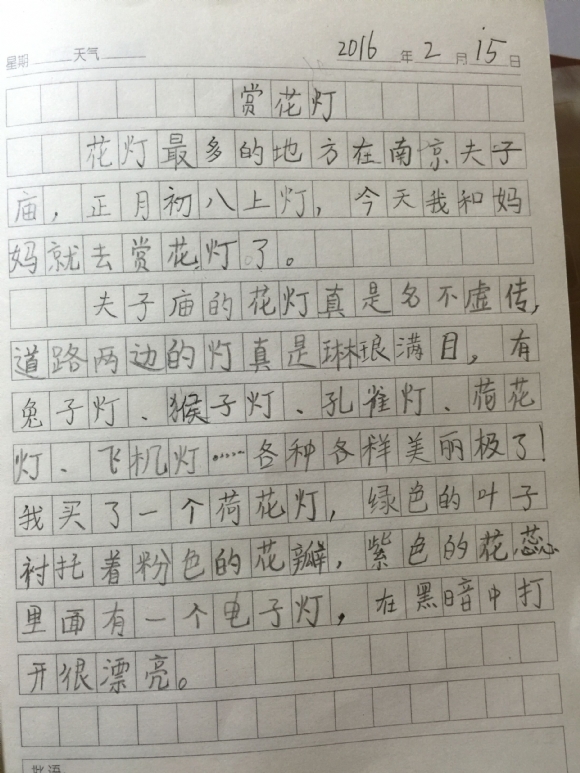 星期 天气 2016 年 2 月 15 日
赏花灯
花灯最多的地方在南京夫子
庙，正月初八上灯，今天我和妈
妈就去赏花灯了。
夫子庙的花灯真是名不虚传，
道路两边的灯真是琳琅满目，有
兔子灯、猴子灯、孔雀灯、荷花
灯、飞机灯……各种各样美丽极了！
我买了一个荷花灯，绿色的叶子
衬托着粉色的花瓣，紫色的花蕊
里面有一个电子灯，在黑暗中打
开很漂亮。
批语